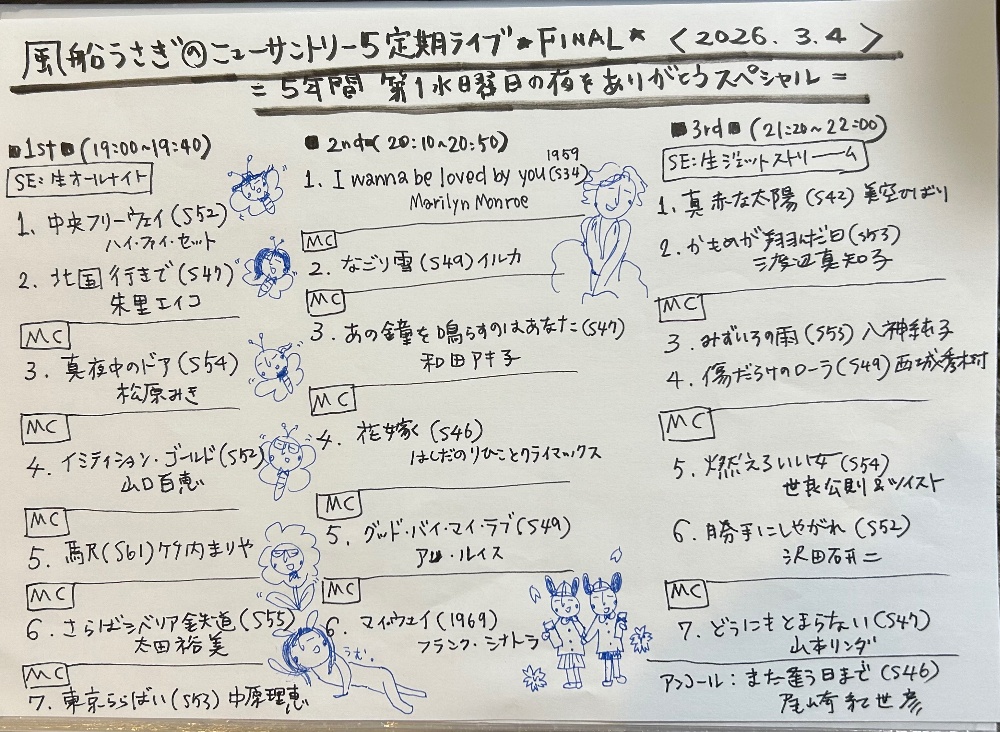 風船うさぎのニューサントリー5定期ライブ★FINAL★ <2026.3.4>
=5年間 第1水曜日の夜をありがとうスペシャル=
■1st■(19:00~19:40)
SE:生オールナイト
1、中央フリーウェイ(S52)
ハイ・ファイ・セット
2、北国行きで(S47)
朱里エイコ
MC
3、真夜中のドア(S54)
松原みき
MC
4、イミテイション・ゴールド(S52)
山口百恵
MC
5、駅(S61)竹内まりや
MC
6、さらばシベリア鉄道(S55)
太田裕美
MC
7、東京ららばい(S53)中原理恵
うむ。
■2nd■(20:10~20:50)
1、I wanna be loved by you(S34)
1959
Marilyn Monroe
MC
2、なごり雪(S49)イルカ
MC
3、あの鐘を鳴らすのはあなた(S47)
和田アキ子
MC
4、花嫁(S46)
はしだのりひことクライマックス
MC
5、グッド・バイ・マイ・ラブ(S49)
アン・ルイス
MC
6、マイウェイ(1969)
フランク・シナトラ
■3rd■(21:20~22:00)
SE:生ジェットストリーム
1、真赤な太陽(S42)美空ひばり
2、かもめが翔んだ日(S53)
渡辺真知子
MC
3、みずいろの雨(S53)八神純子
4、傷だらけのローラ(S49)西城秀樹
MC
5、燃えろいい女(S54)
世良公則&ツイスト
6、勝手にしやがれ(S52)
沢田研二
MC
7、どうにもとまらない(S47)
山本リンダ
アンコール:また逢う日まで(S46)
尾崎紀世彦